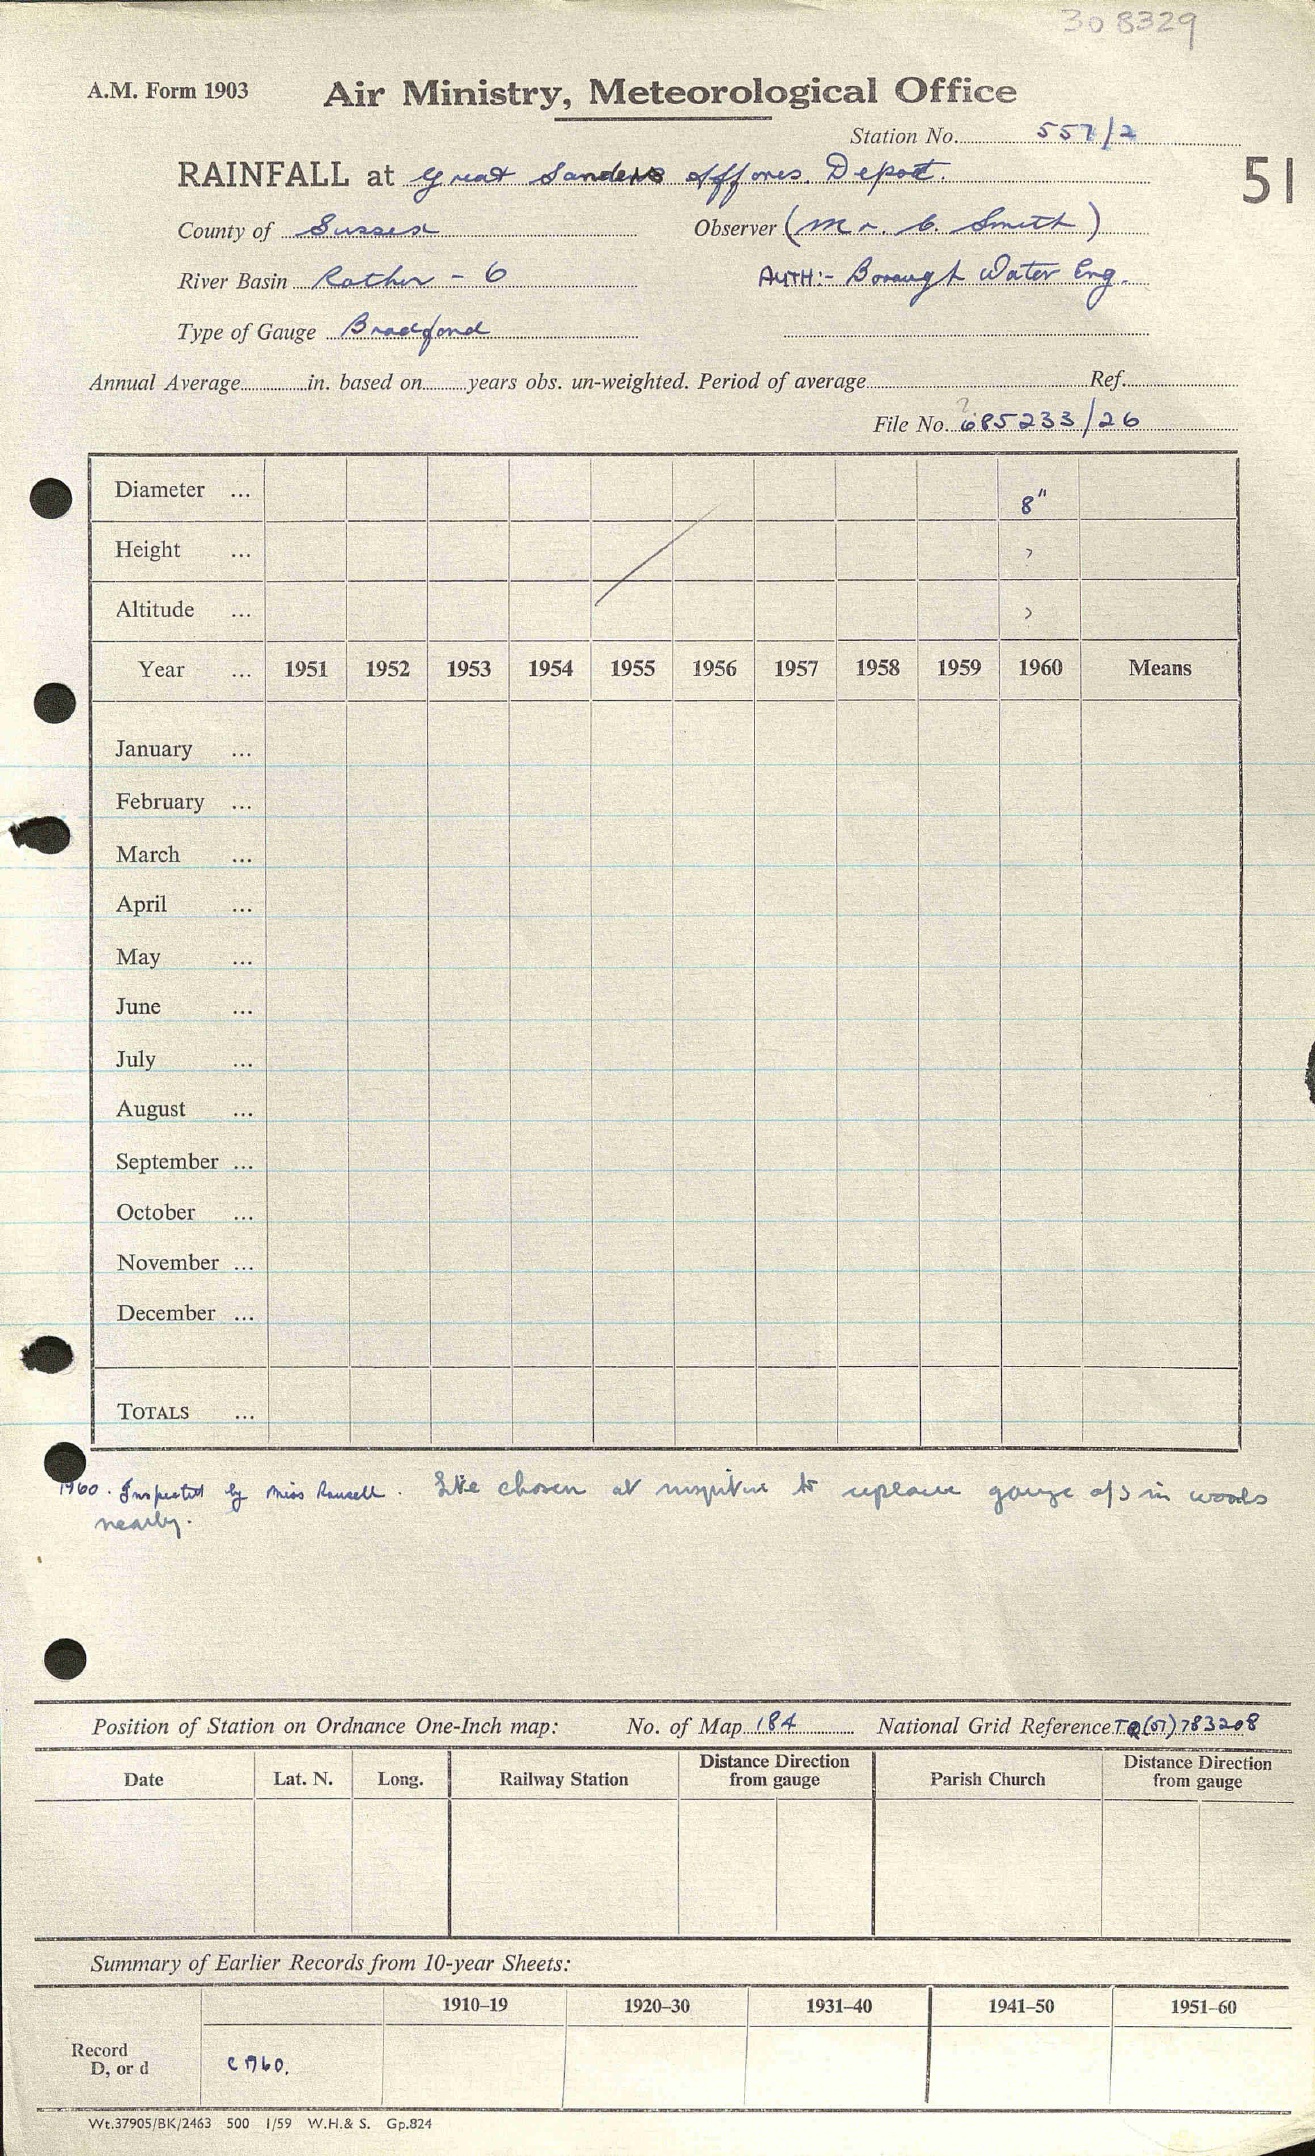 308329
A.M. Form 1903 Air Ministry, Meteorological Office
Station No. 557/2
51
RAINFALL at Great Sanders Depot.
County of Sussex Observer (Mr. C. Smith)
River Basin Rother - 6 AUTH:- Borough Water Eng.
Type of Gauge Bradford
Annual Average in. based on years obs. un-weighted. Period of average Ref.
File No. ? 685233/26
Diameter ... 8"
Height ... ?
Altitude ... ?
Year ... 1951 1952 1953 1954 1955 1956 1957 1958 1959 1960 Means
January ...
February ...
March ...
April ...
May ...
June ...
July ...
August ...
September ...
October ...
November ...
December ...
TOTALS ...
1960. Inspected by Miss Site chosen at inspection to replace gauge in woods
nearby.
Position of Station on Ordnance One-Inch map: No. of Map 184 National Grid Reference TQ(51)783208
Date Lat. N. Long. Railway Station Distance Direction from gauge Parish Church Distance Direction from gauge
Summary of Earlier Records from 10-year Sheets:
1910–19 1920–30 1931–40 1941–50 1951–60
Record
D, or d c 1960.
Wt.37905/BK/2463 500 1/59 W.H.& S. Gp.824